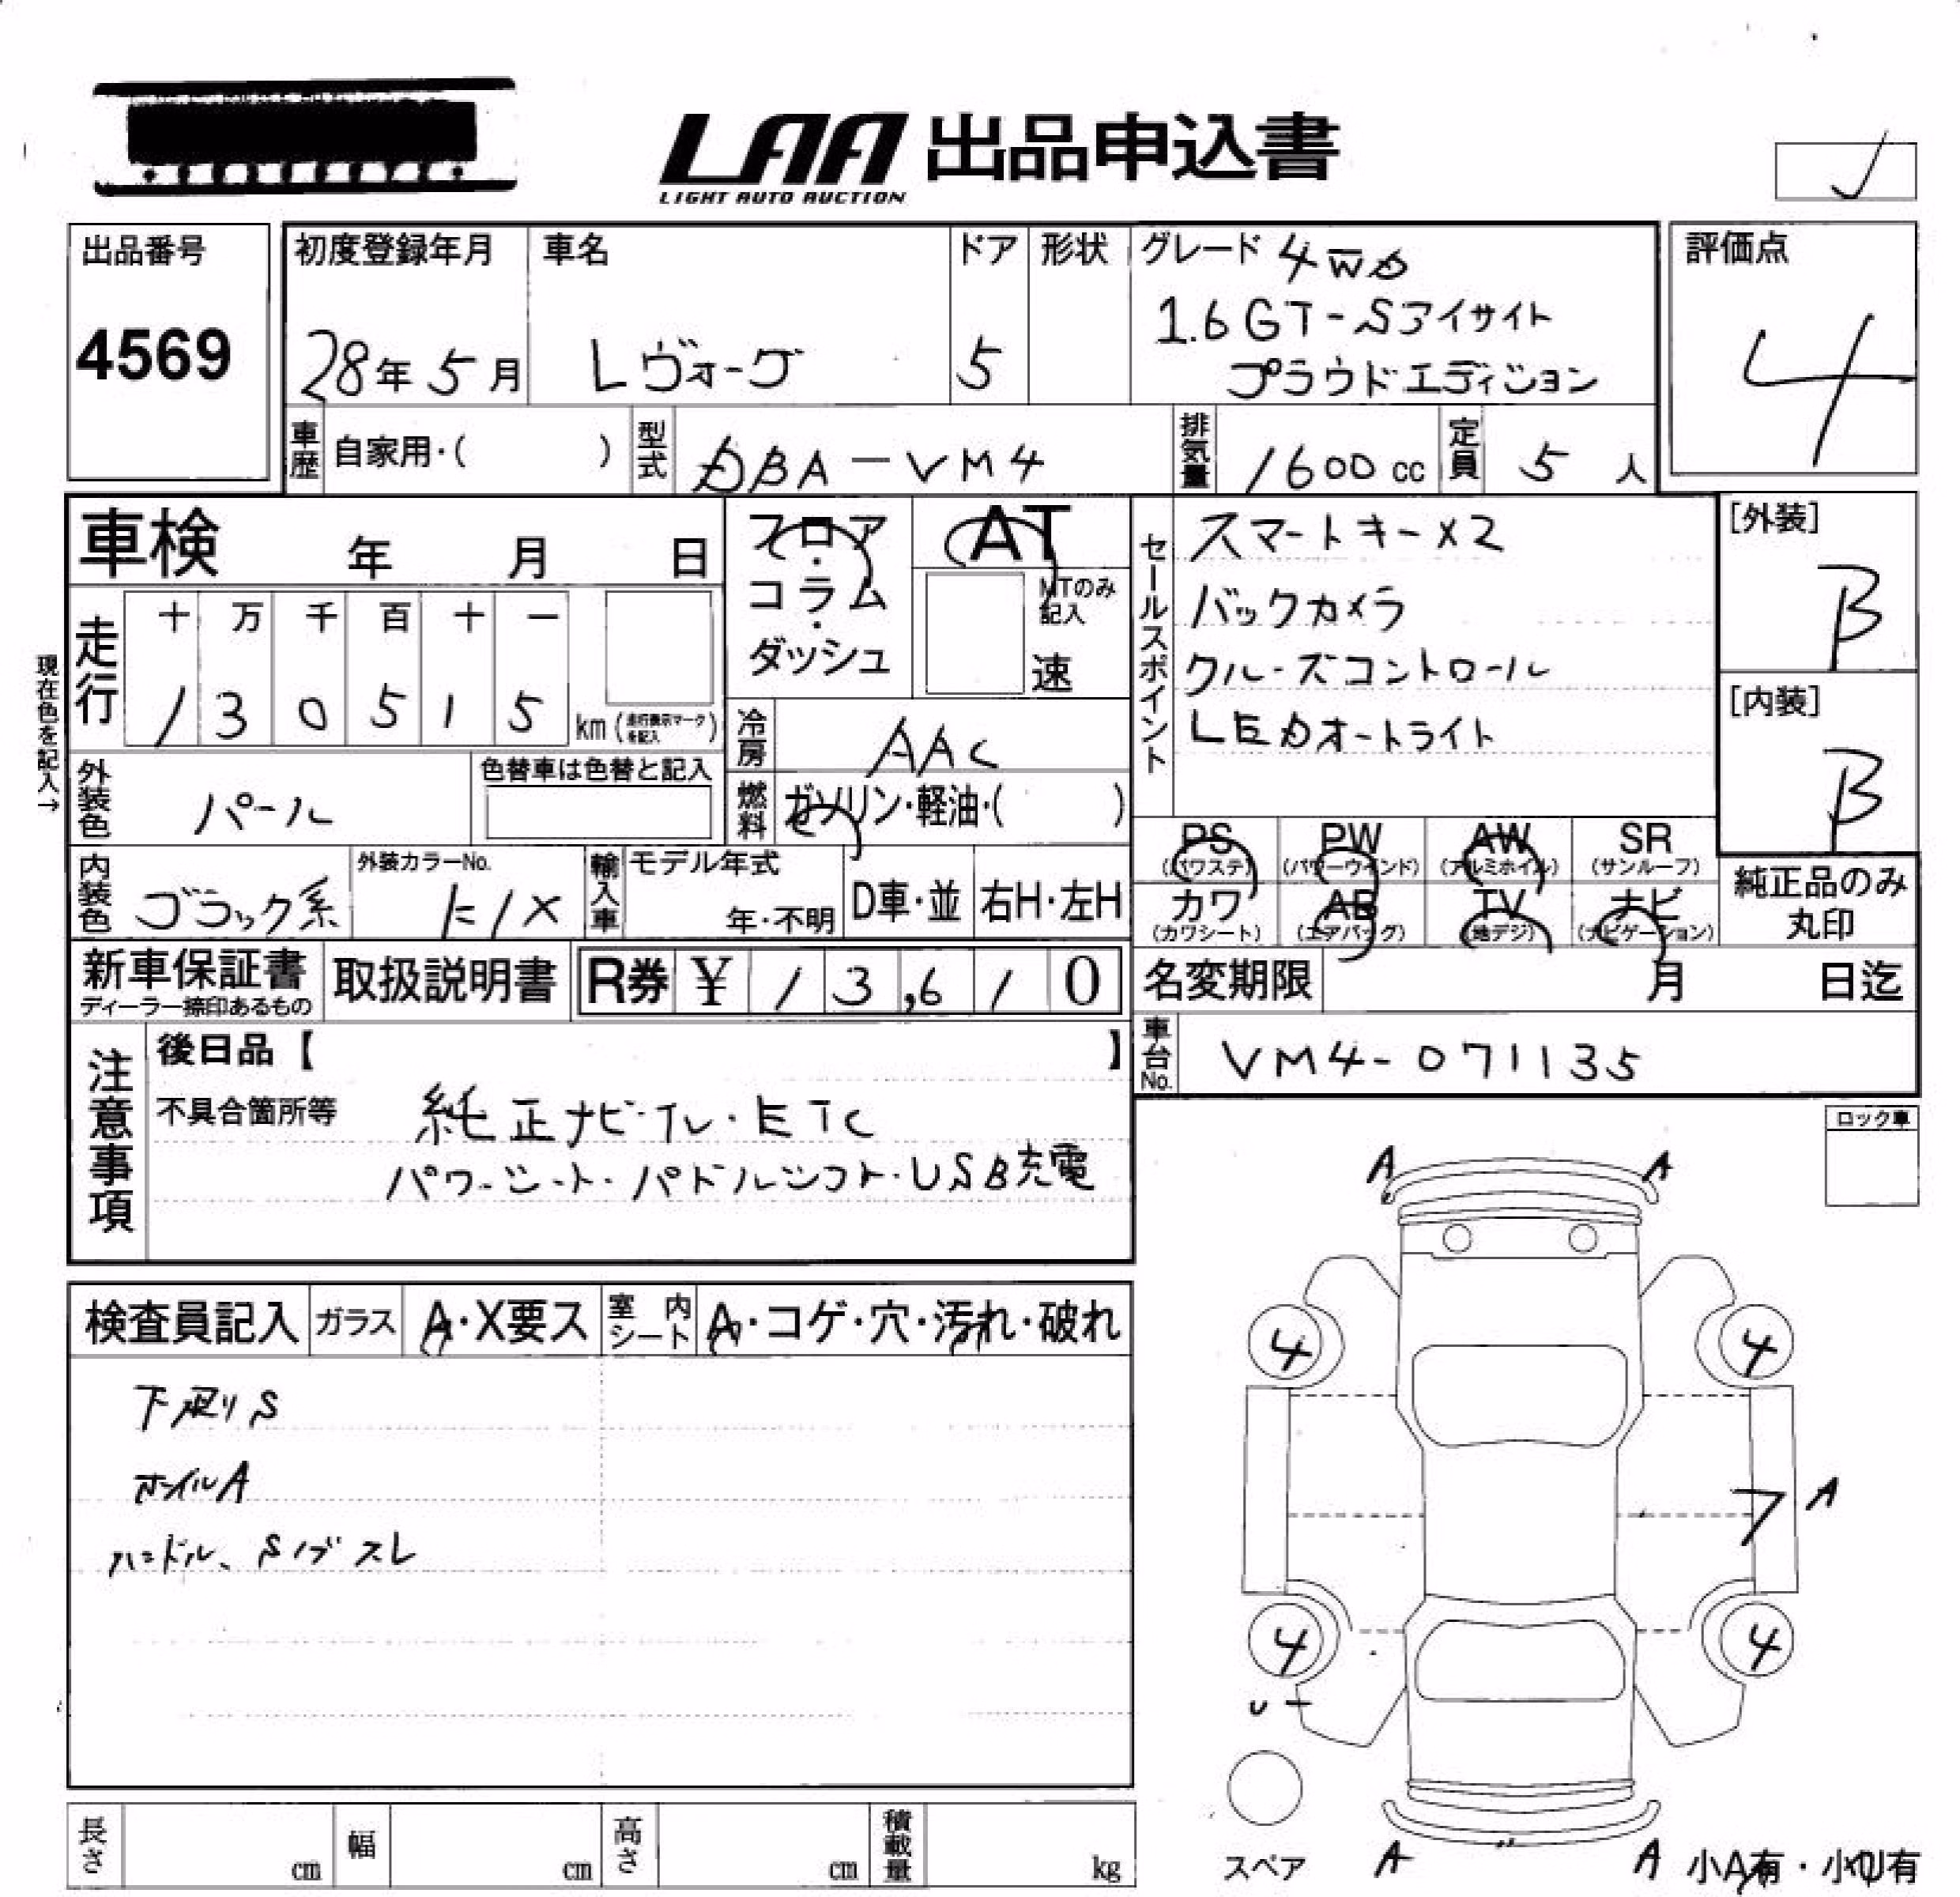 LAA 出品申込書
LIGHT AUTO AUCTION
出品番号
4569
初度登録年月
28年 5月
車名
レヴォーグ
ドア
5
形状
グレード 4WD
1.6GT-Sアイサイト
プラウドエディション
評価点
4
車歴 自家用・( )
型式 DBA-VM4
排気量 1600 cc
定員 5 人
車検 年 月 日
フロア・コラム・ダッシュ
AT
MTのみ記入
速
セールスポイント
スマートキー×2
バックカメラ
クルーズコントロール
LEDオートライト
[外装]
B
[内装]
B
現在色を記入→
走行
十 万 千 百 十 一
1 3 0 5 1 5 km (走行表示マークを記入)
冷房 AAC
外装色 パール
色替車は色替と記入
燃料 ガソリン・軽油・( )
内装色 ブラック系
外装カラーNo.
K1X
輸入車
モデル年式
年・不明
D車・並
右H・左H
PS (パワステ)
PW (パワーウインド)
AW (アルミホイル)
SR (サンルーフ)
カワ (カワシート)
AB (エアバッグ)
TV (地デジ)
ナビ (ナビゲーション)
純正品のみ丸印
新車保証書
ディーラー捺印あるもの
取扱説明書
R券 ¥ 13,610
名変期限 月 日迄
車台No. VM4-071135
注意事項
後日品【 】
不具合箇所等
純正ナビ・TV・ETC
パワーシート・パドルシフト・USB充電
ロック車
検査員記入
ガラス A・X要ス
室内シート A・コゲ・穴・汚れ・破れ
下廻りS
ホイルA
ハンドル、Sノブスレ
A A
4 4
A
4 4
スペア
A A
小A有・小U有
長さ cm
幅 cm
高さ cm
積載量 kg